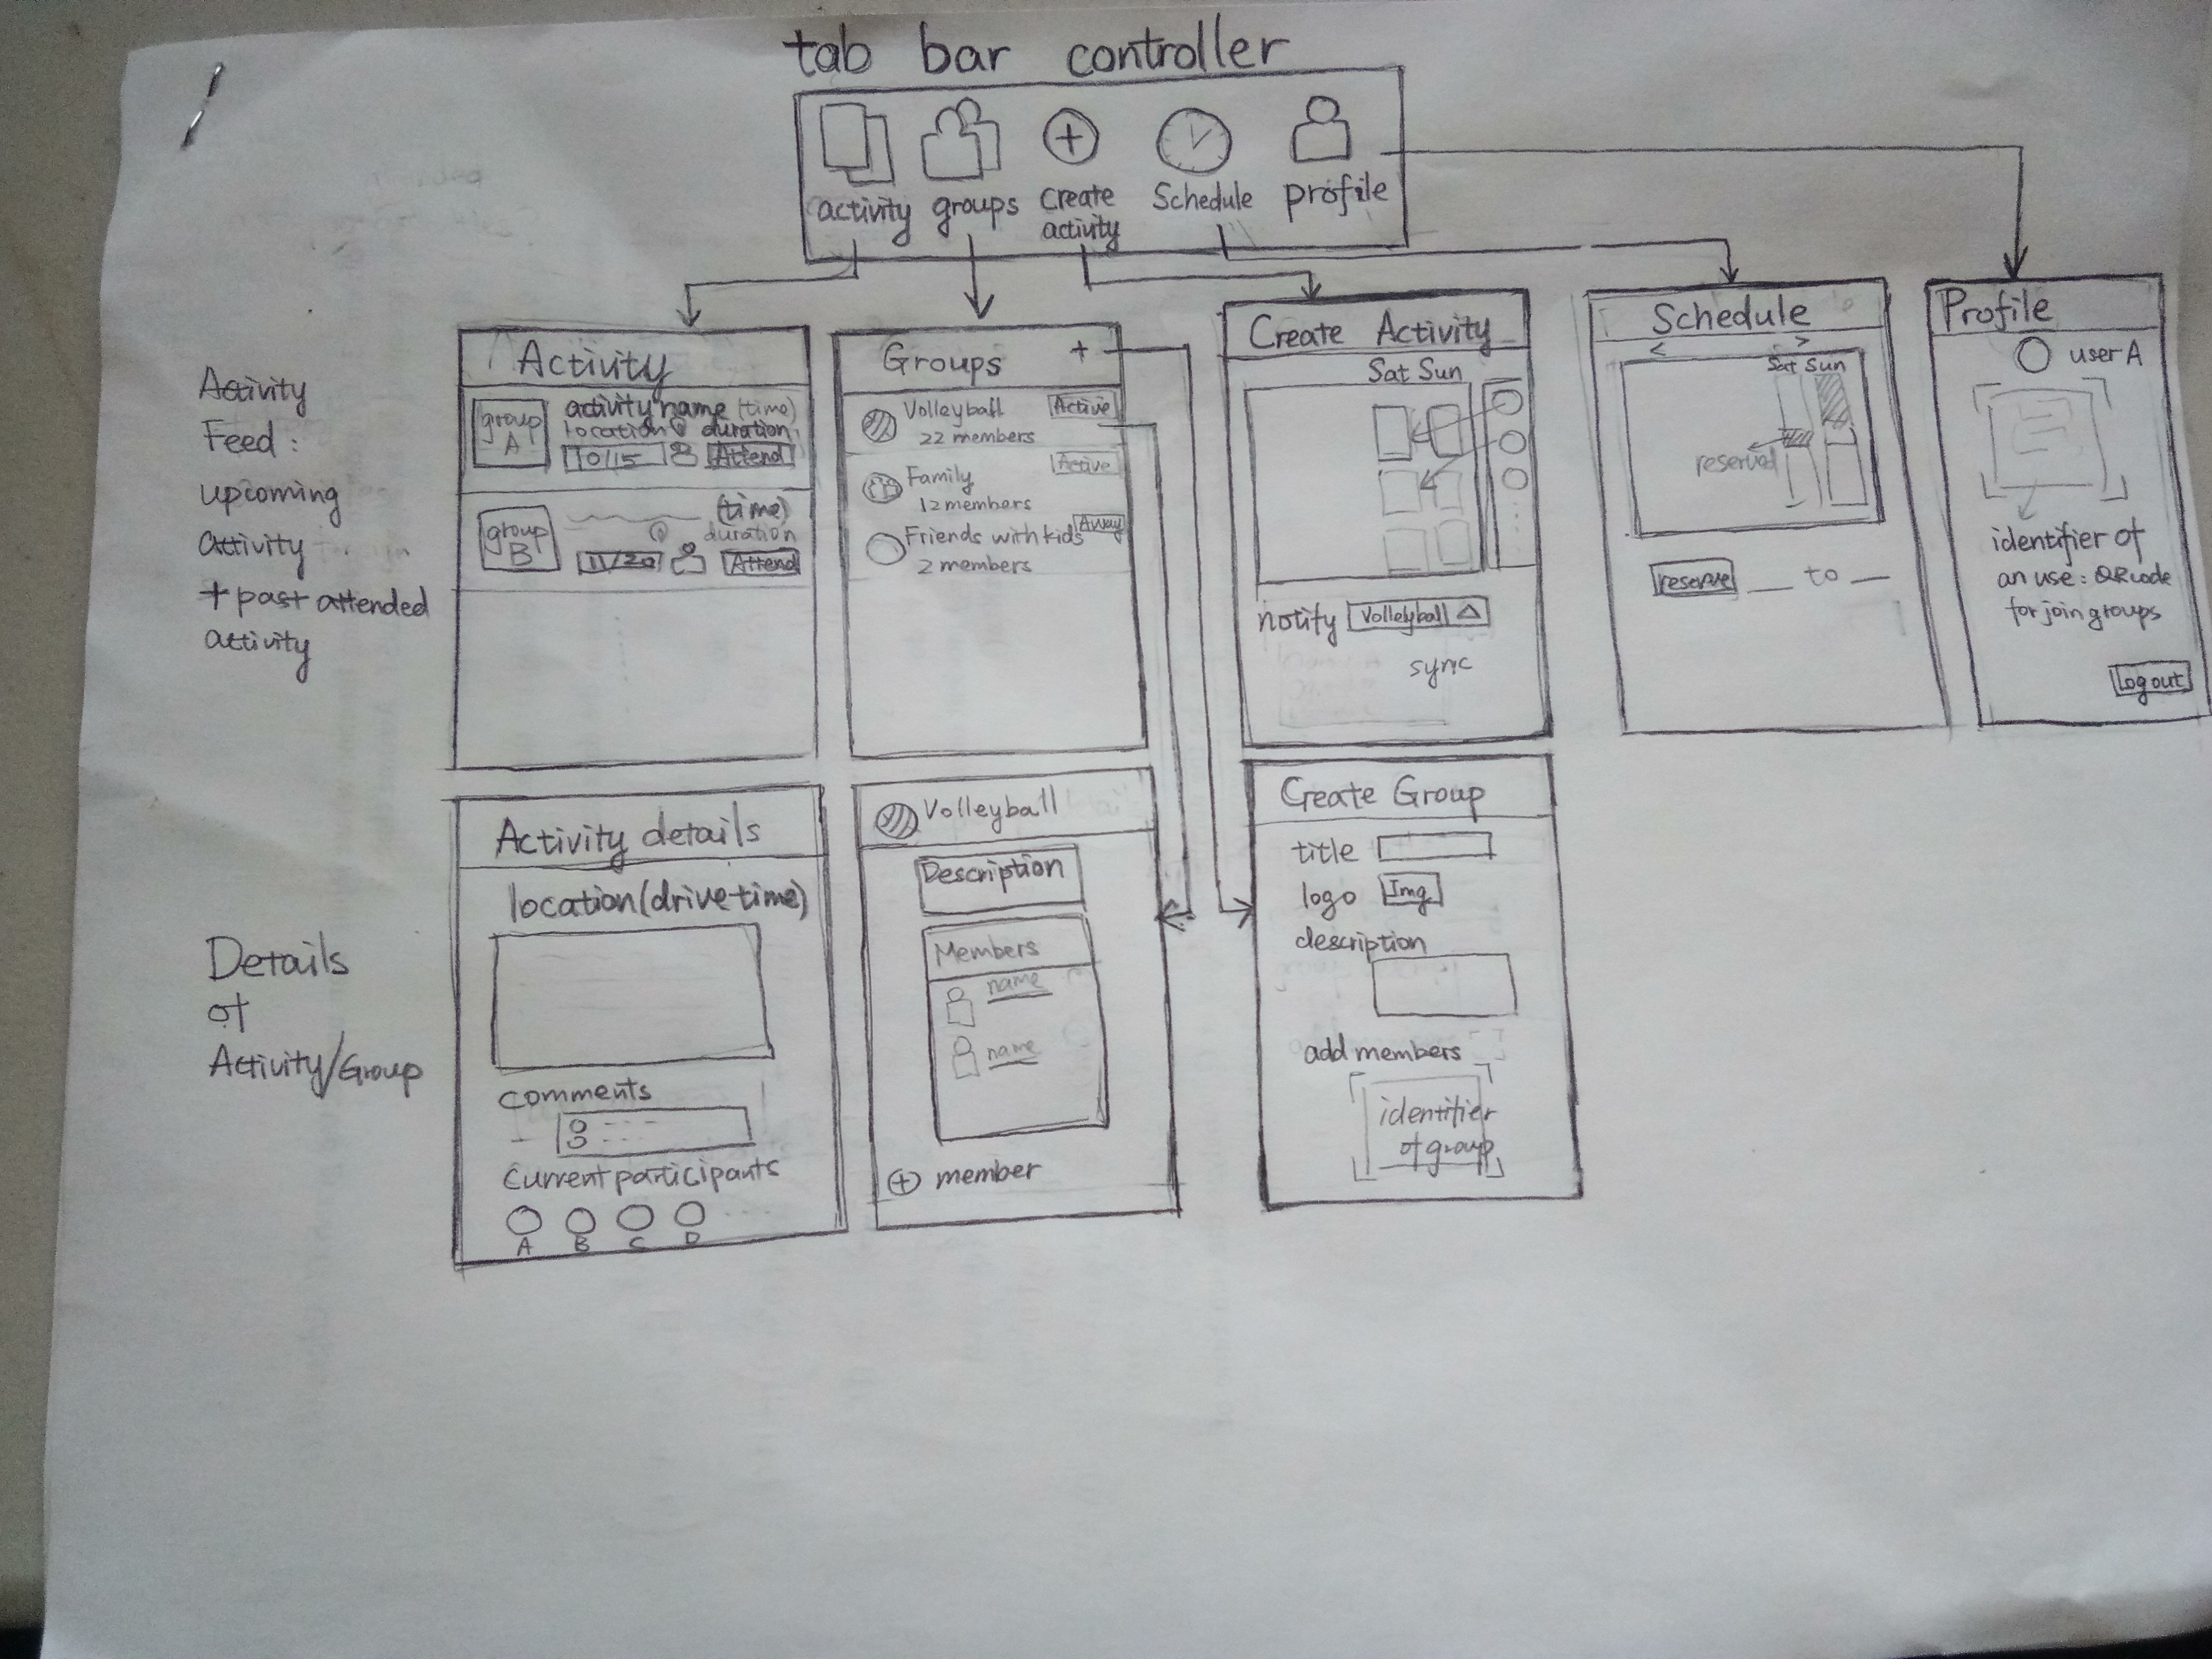 tab bar controller
activity
groups
Create
activity
Schedule
profile
Activity
Feed :
upcoming
activity
+ past attended
activity
Activity
group
A
activity name (time)
location duration
10/15 Attend
group
B
(time)
duration
11/20 Attend
Groups +
Volleyball Active
22 members
Family Active
12 members
Friends with kids Away
2 members
Create Activity
Sat Sun
notify Volleyball
sync
Schedule
< >
Sat Sun
reserved
reserve __ to __
Profile
user A
identifier of
an use : QR code
for join groups
Logout
Details
of
Activity/Group
Activity details
location (drive time)
comments
Current participants
A B C D
Volleyball
Description
Members
name
name
+ member
Create Group
title
logo Img
description
add members
identifier
of group